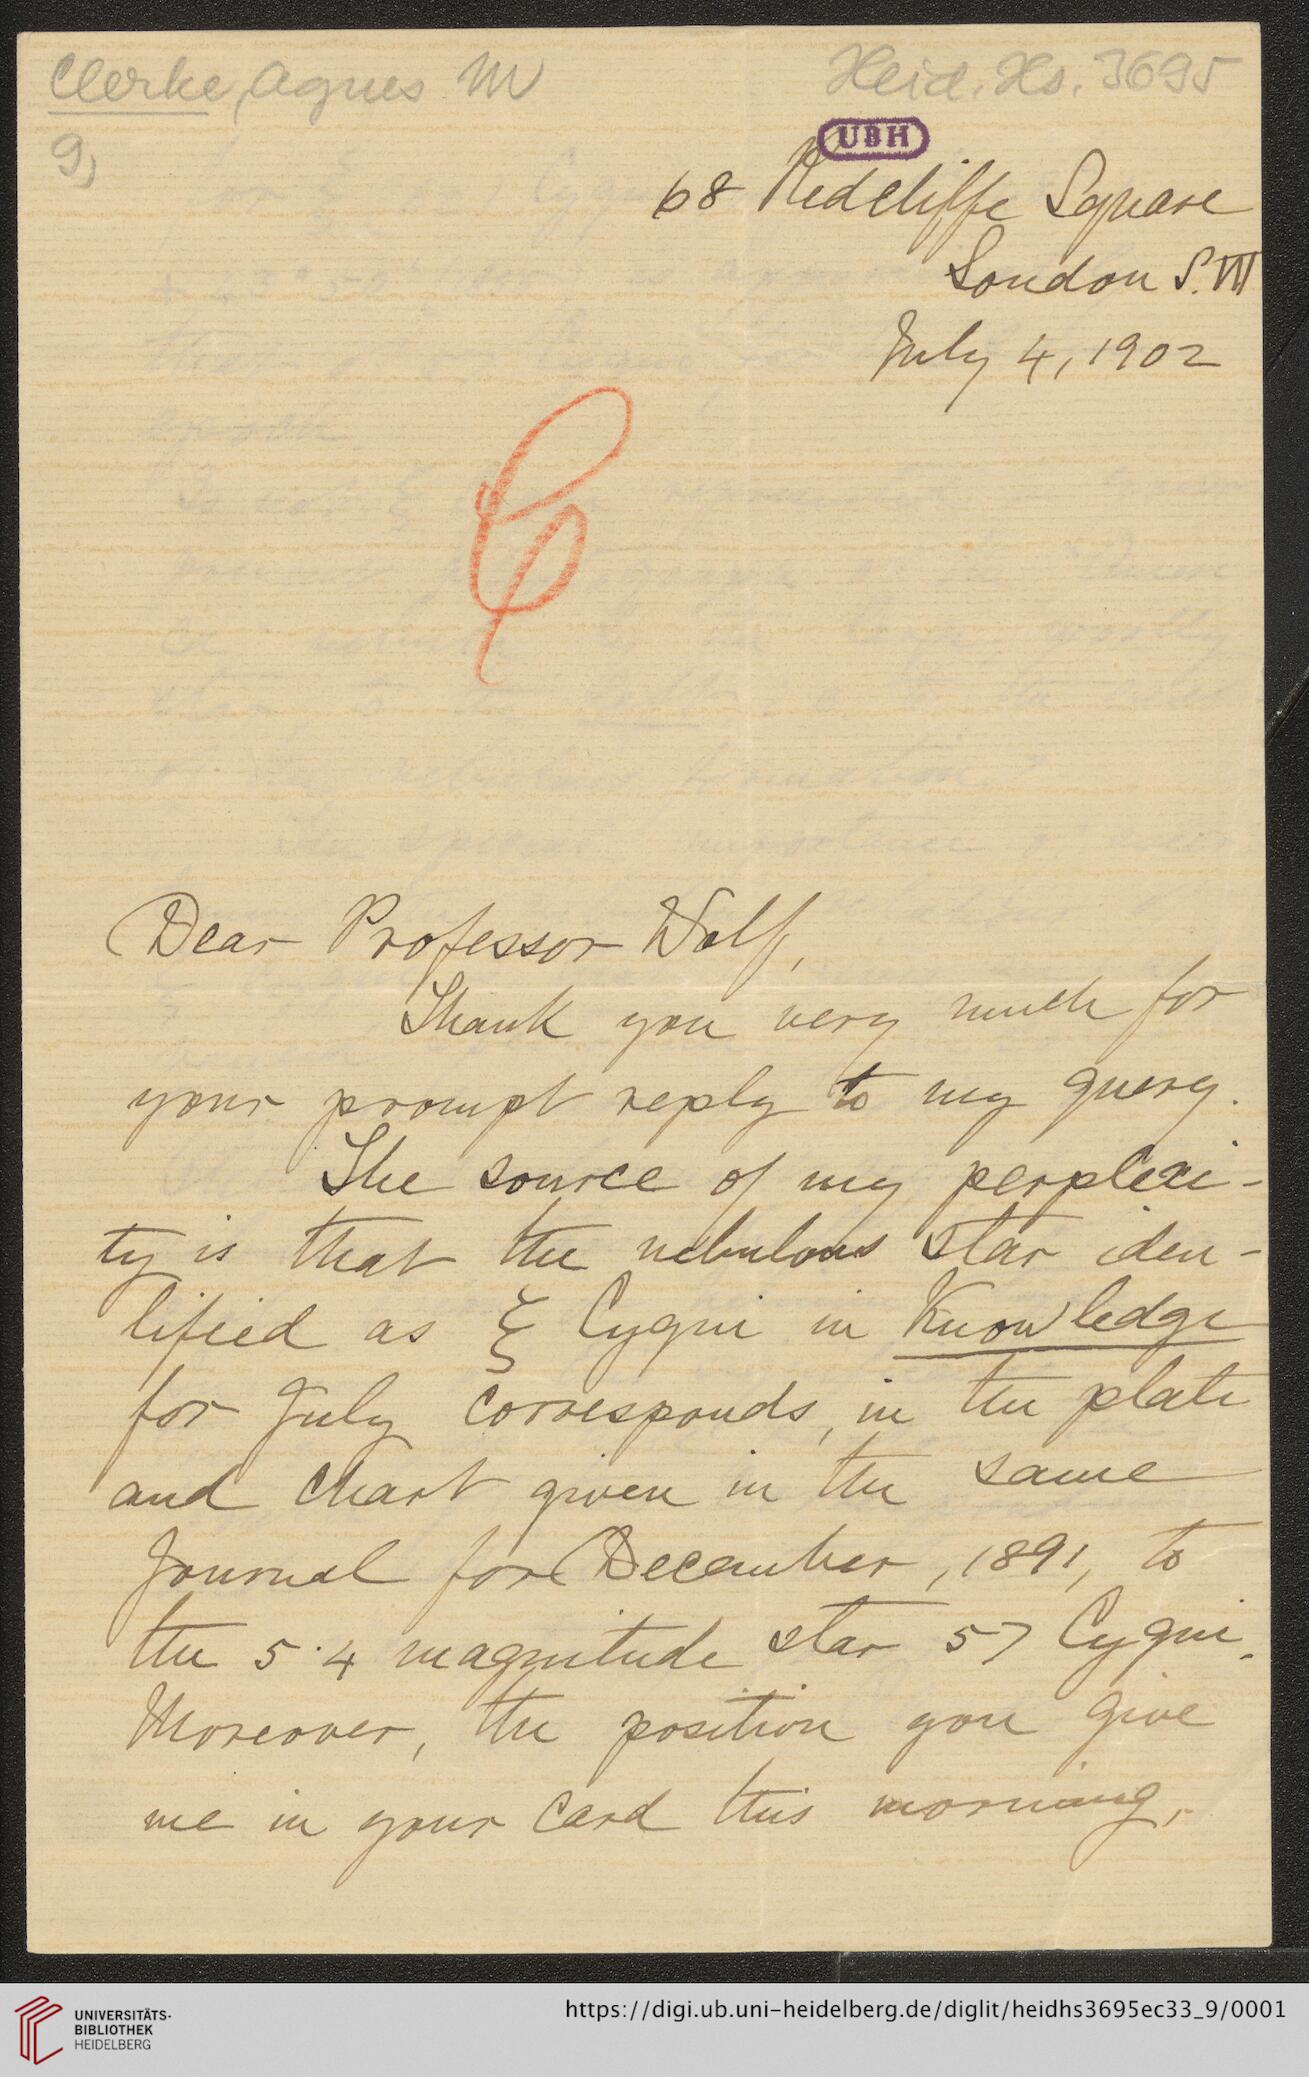 Clerke, Agnes M
Heid. Hs. 3695
9)
UBH
68 Redcliffe Square
London S.W
July 4, 1902
Dear Professor Wolf,
Thank you very much for
your prompt reply to my query.
The source of my perplexi-
ty is that the nebulous star iden-
tified as ξ Cygni in Knowledge
for July corresponds, in the plate
and chart given in the same
Journal for December, 1891, to
the 5.4 magnitude star 57 Cygni.
Moreover, the position you give
me in your card this morning,
UNIVERSITÄTS-
BIBLIOTHEK
HEIDELBERG
https://digi.ub.uni-heidelberg.de/diglit/heidhs3695ec33_9/0001